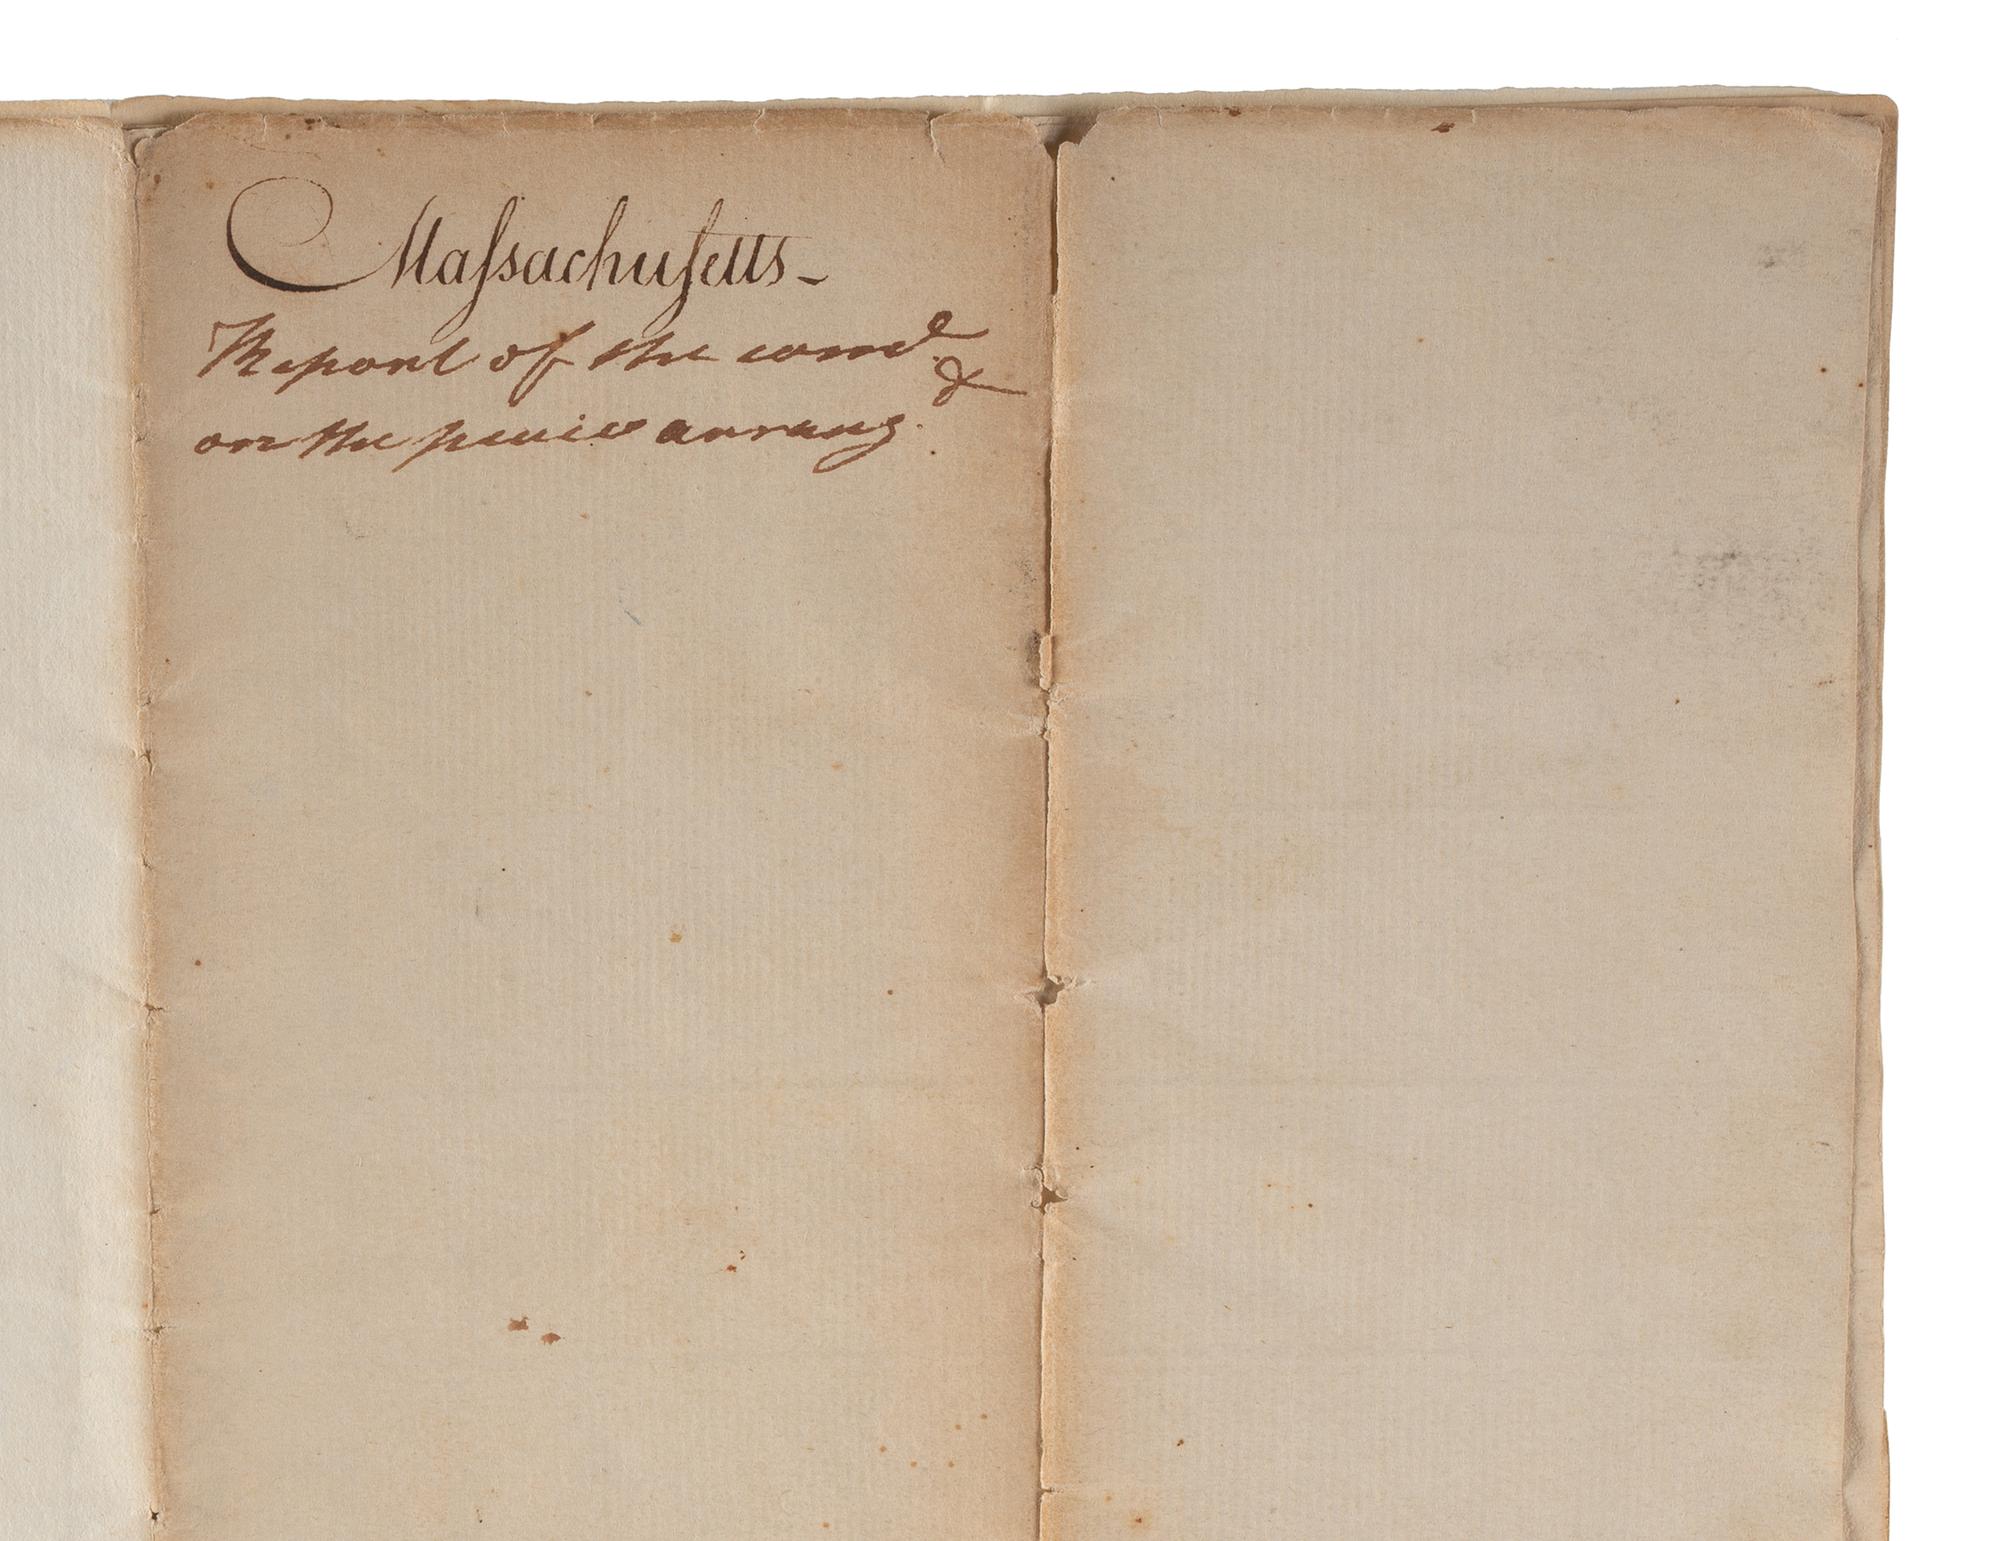 Maſsachuſetts-
Report of the
on the arrang.